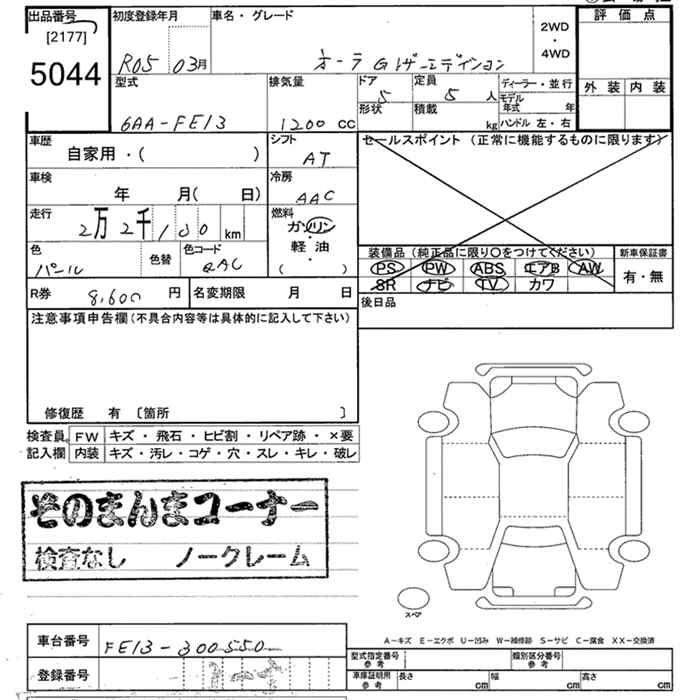 出品番号
[2177]
5044
初度登録年月
R05 03月
車名・グレード
オーラ G レザーエディション
2WD
・
4WD
評 価 点
外 装 内 装
型式
6AA-FE13
排気量
1200 CC
ドア
5
定員
5 人
形状
積載
kg
ディーラー・並行
モデル年式 年
ハンドル 左・右
車歴
自家用・( )
シフト
AT
車検
年 月( 日)
冷房
AAC
走行
2万2千100 km
燃料
ガソリン
軽・油
( )
色
パール
色替
色コード
QAC
R券 8,600 円
名変期限 月 日
セールスポイント (正常に機能するものに限ります)
装備品 (純正品に限り〇をつけてください)
PS PW ABS エアB AW
SR ナビ TV カワ
新車保証書
有・無
後日品
注意事項申告欄 (不具合内容等は具体的に記入して下さい)
修復歴 有 〔箇所 〕
検査員記入欄
FW キズ・飛石・ヒビ割・リペア跡・×要
内装 キズ・汚レ・コゲ・穴・スレ・キレ・破レ
そのまんまコーナー
検査なし ノークレーム
スペア
A－キズ E－エクボ U－凹み W－補修跡 S－サビ C－腐食 XX－交換済
車台番号 FE13-300550
登録番号
型式指定番号 参考
類別区分番号 参考
車庫証明用 参考
長さ cm
幅 cm
高さ cm